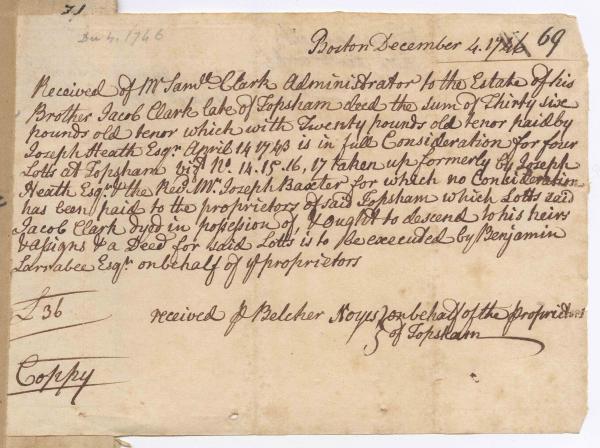 71
Dec 4. 1746
Boston December 4. 1746 69
Received of Mr Saml. Clark Administrator to the Estate of his
Brother Jacob Clark late of Topsham deced the sum of Thirty six
pounds old tenor which with Twenty pounds old tenor paid by
Joseph Heath Esqr. April 14 1743 is in full Consideration for four
Lotts at Topsham vizt No. 14. 15. 16, 17 taken up formerly by Joseph
Heath Esqr. & the Revd. Mr. Joseph Baxter for which no Consideration
has been paid to the proprietors of said Topsham which Lotts said
Jacob Clark dyed in possesion of, & ought to descend to his heirs
& asigns & a Deed for said Lotts is to be executed by Benjamin
Larrabee Esqr. on behalf of ye proprietors
£36 received p Belcher Noyes on behalf of the proprietors
of Topsham
Coppy